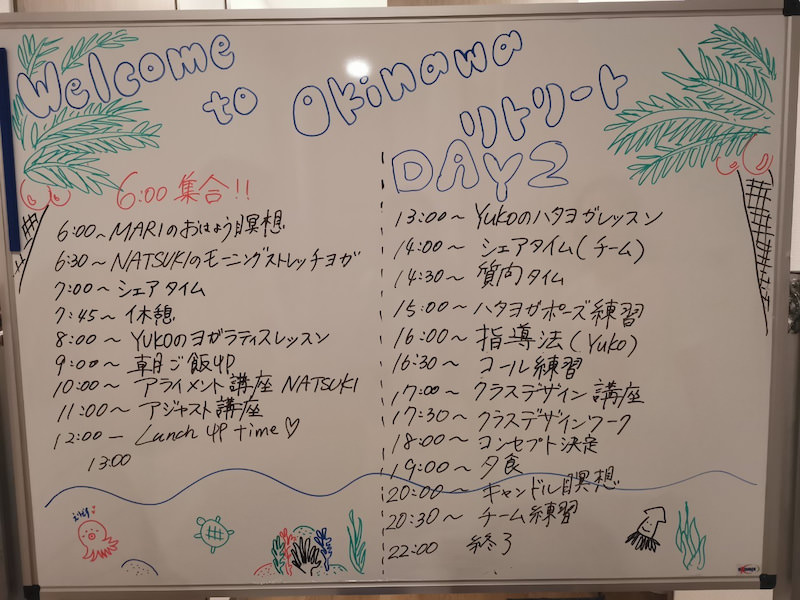 Welcome
to Okinawa
リトリート
DAY2
6:00 集合!!
6:00~ MARIのおはよう瞑想
6:30~ NATSUKIのモーニングストレッチヨガ
7:00~ シェアタイム
7:45~ 休憩
8:00~ YUKOのヨガラティスレッスン
9:00~ 朝ご飯up
10:00~ アライメント講座 NATSUKI
11:00~ アジャスト講座
12:00― Lunch up time♡
13:00
13:00~ YUKOのハタヨガレッスン
14:00~ シェアタイム(チーム)
14:30~ 質問タイム
15:00~ ハタヨガポーズ練習
16:00~ 指導法(Yuko)
16:30~ コール練習
17:00~ クラスデザイン講座
17:30~ クラスデザインワーク
18:00~ コンセプト決定
19:00~ 夕食
20:00~ キャンドル瞑想
20:30~ チーム練習
22:00 終了